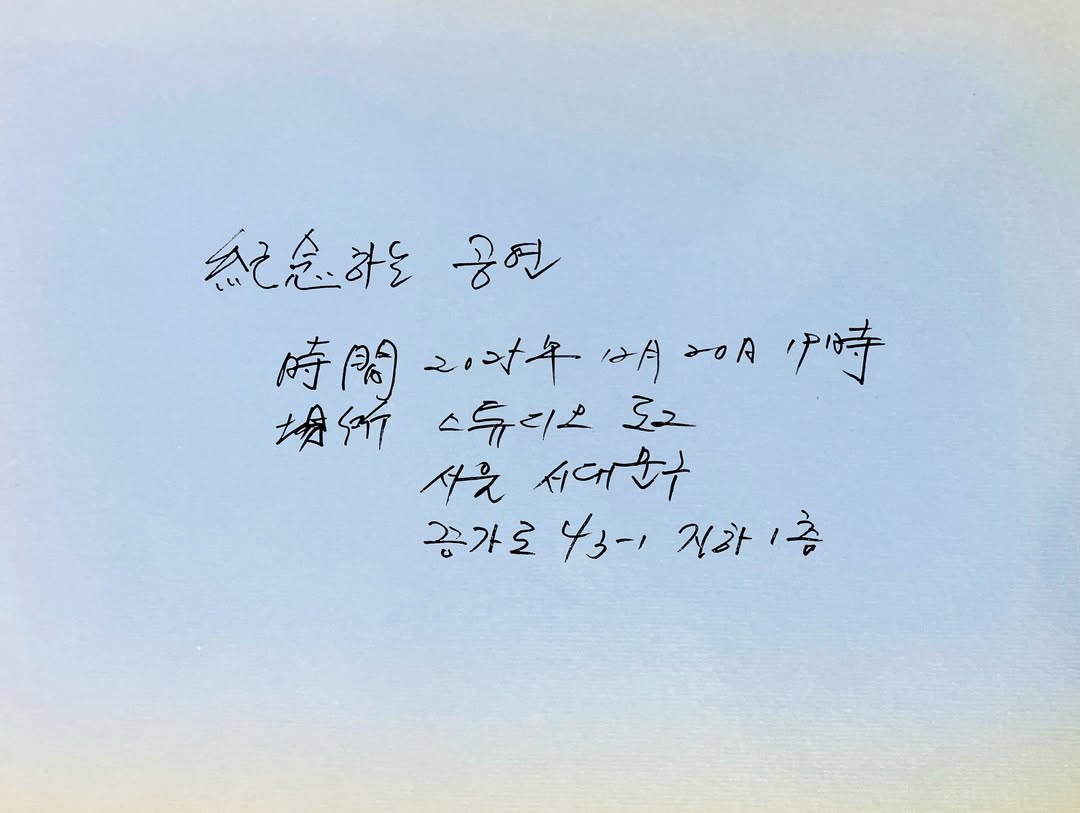 紀念하는 공연
時間 2025年 12月 20日 19時
場所 스튜디오 로그
서울 서대문구
증가로 43-1 지하 1층